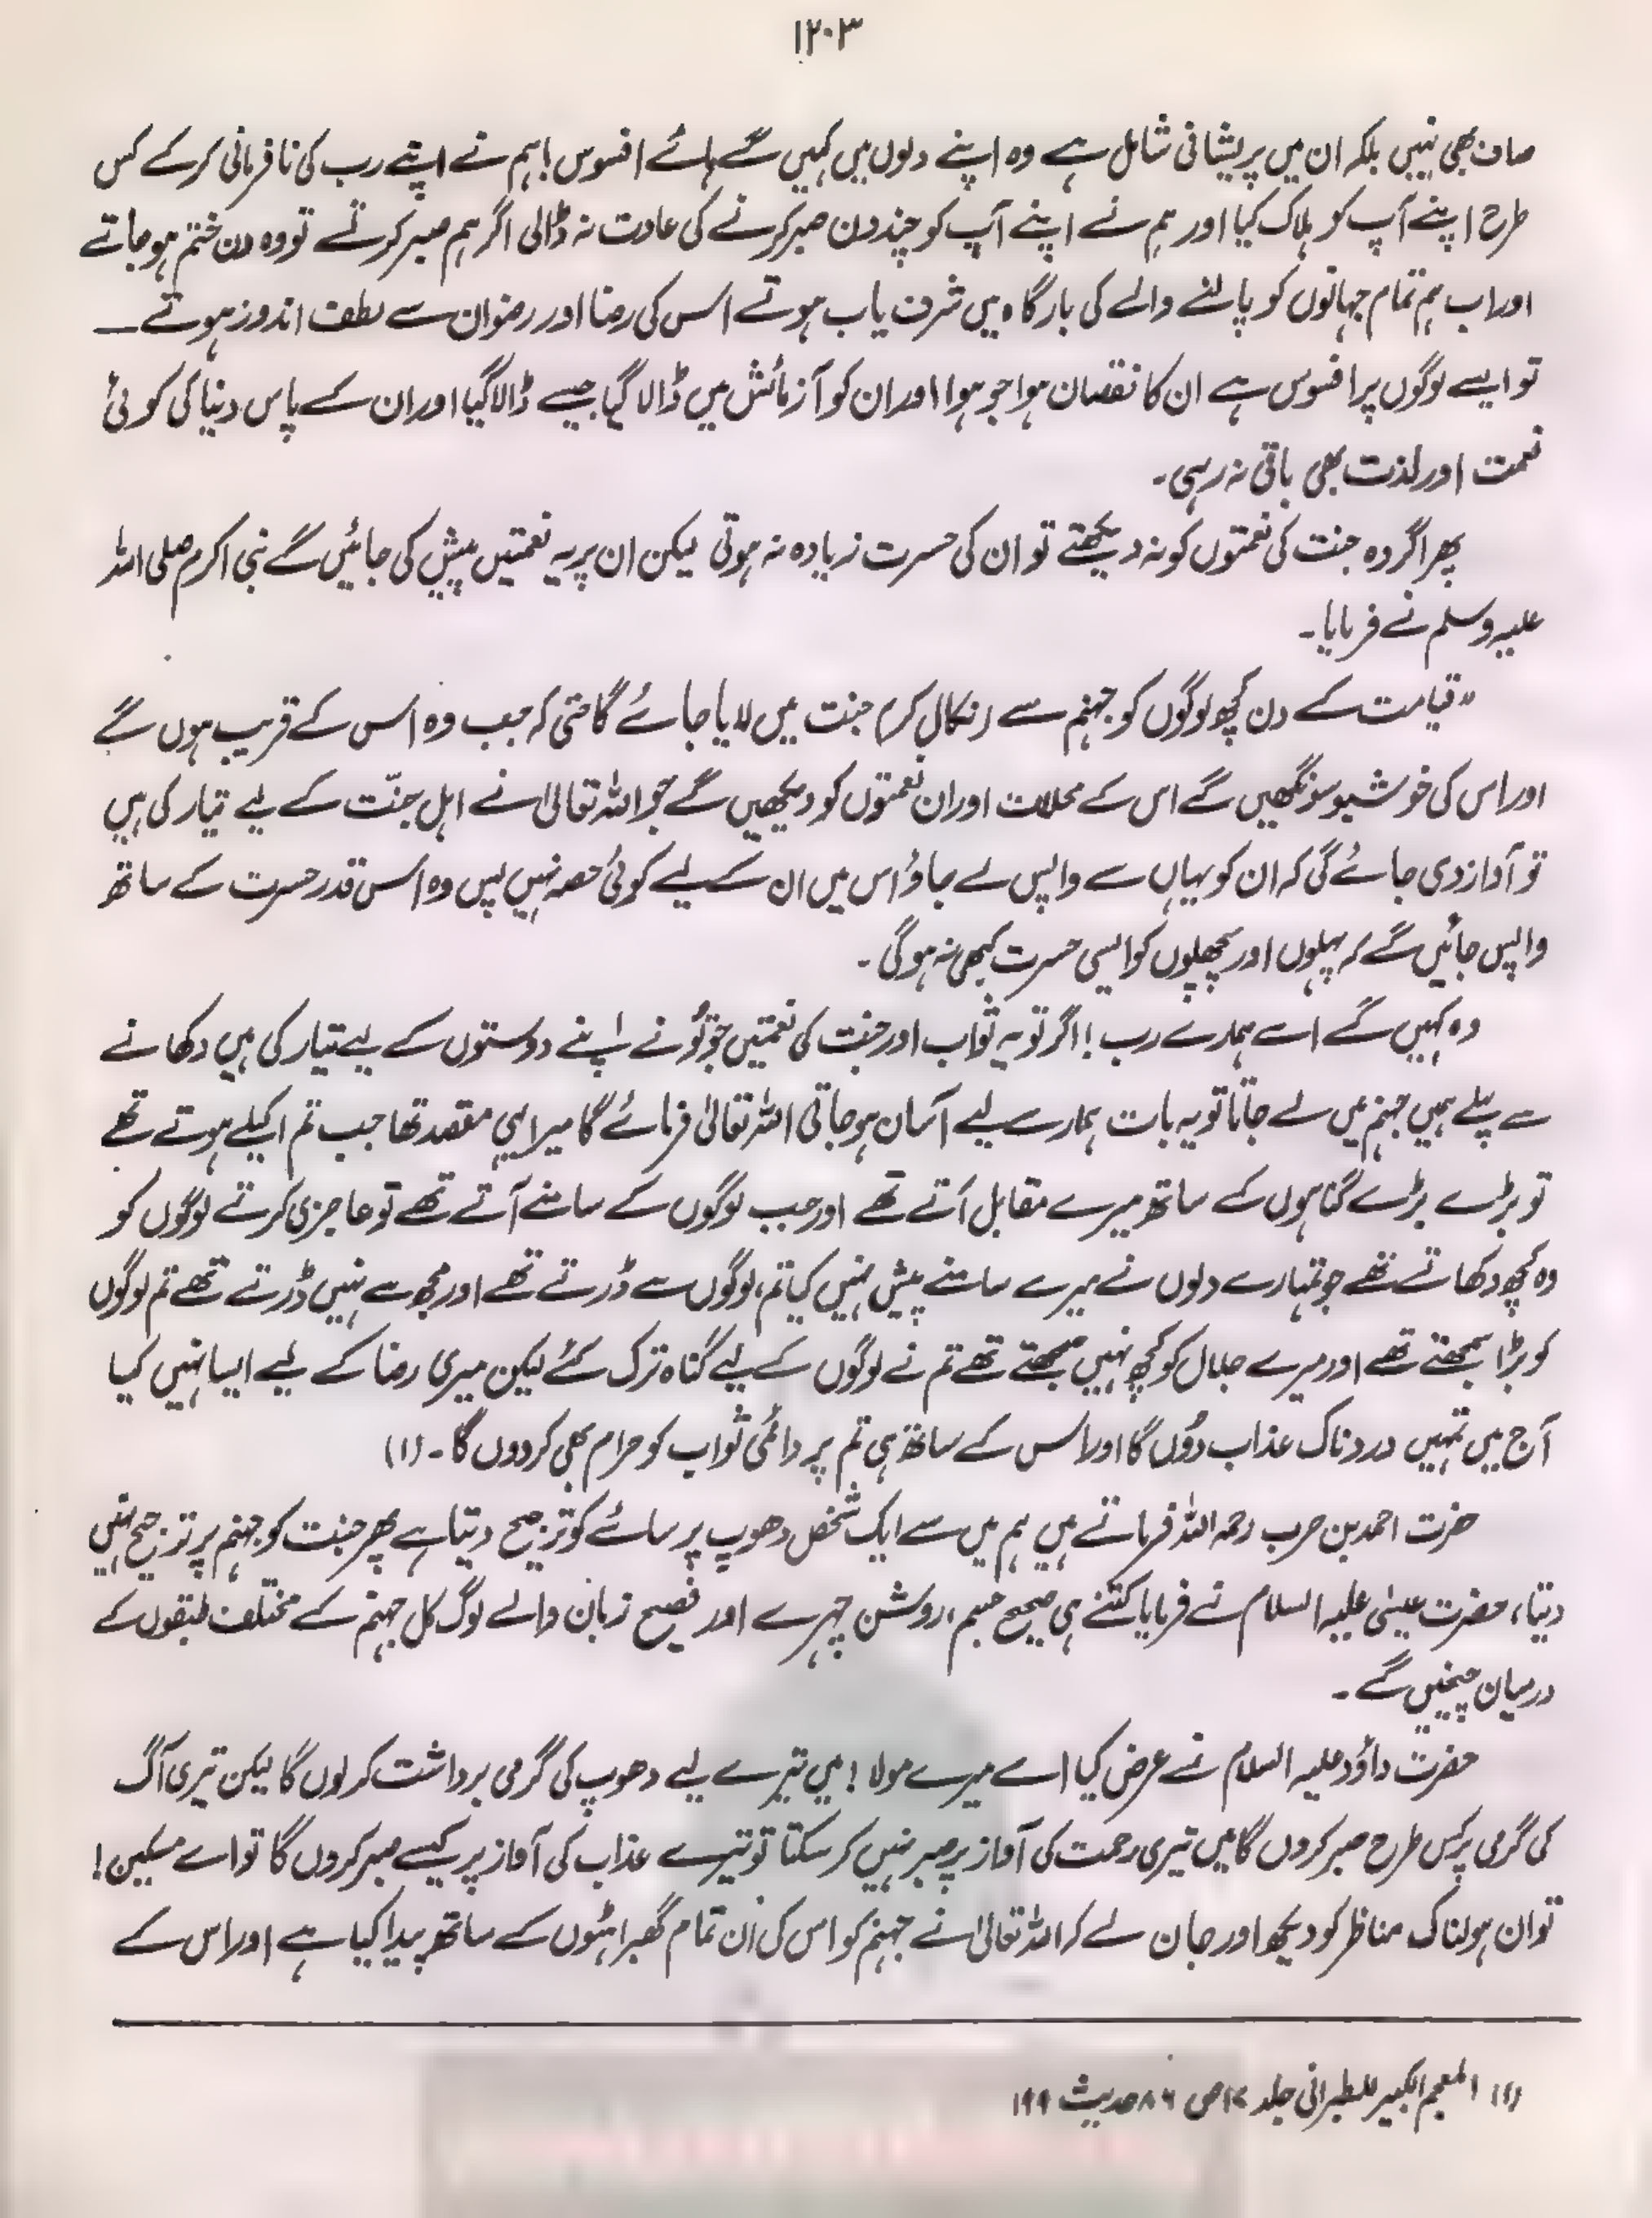 ۱۲۰۳
صاف بھی نہیں بلکہ ان میں پریشانی شامل ہے وہ اپنے دلوں میں کہیں گے ہائے افسوس! ہم نے اپنے رب کی نافرمانی کر کے کس
طرح اپنے آپ کو ہلاک کیا اور ہم نے اپنے آپ کو چند دن صبر کرنے کی عادت نہ ڈالی اگر ہم صبر کرتے تو وہ دن ختم ہو جاتے
اور اب ہم تمام جہانوں کو پالنے والے کی بارگاہ میں شرف یاب ہوتے اس کی رضا اور رضوان سے لطف اندوز ہوتے ــــ
تو ایسے لوگوں پر افسوس ہے ان کا نقصان ہوا جو ہوا اور ان کو آزمائش میں ڈالا گیا جیسے ڈالا گیا اور ان کے پاس دنیا کی کوئی
نعمت اور لذت بھی باقی نہ رہی۔
پھر اگر وہ جنت کی نعمتوں کو نہ دیکھتے تو ان کی حسرت زیادہ نہ ہوتی لیکن ان پر یہ نعمتیں پیش کی جائیں گے نبی اکرم صلی اللہ
علیہ وسلم نے فرمایا۔
"قیامت کے دن کچھ لوگوں کو جہنم سے (نکال کر) جنت میں لایا جائے گا حتیٰ کہ جب وہ اس کے قریب ہوں گے
اور اس کی خوشبو سونگھیں گے اس کے محلات اور ان نعمتوں کو دیکھیں گے جو اللہ تعالیٰ نے اہل جنّت کے لیے تیار کی ہیں
تو آواز دی جائے گی کہ ان کو یہاں سے واپس لے جاؤ اس میں ان کے لیے کوئی حصہ نہیں پس وہ اس قدر حسرت کے ساتھ
واپس جائیں گے کہ پہلوں اور پچھلوں کو ایسی حسرت کبھی نہ ہوگی۔
وہ کہیں گے اے ہمارے رب! اگر تو یہ ثواب اور جنت کی نعمتیں جو تُو نے اپنے دوستوں کے لیے تیار کی ہیں دکھانے
سے پہلے ہمیں جہنم میں لے جاتا تو یہ بات ہمارے لیے آسان ہو جاتی اللہ تعالیٰ فرمائے گا میرا یہی مقصد تھا جب تم اکیلے ہوتے تھے
تو بڑے بڑے گناہوں کے ساتھ میرے مقابل آتے تھے اور جب لوگوں کے سامنے آتے تھے تو عاجزی کرتے لوگوں کو
وہ کچھ دکھاتے تھے جو تمہارے دلوں نے میرے سامنے پیش نہیں کیا تم لوگوں سے ڈرتے تھے اور مجھ سے نہیں ڈرتے تھے تم لوگوں
کو بڑا سمجھتے تھے اور میرے جلال کو کچھ نہیں سمجھتے تھے تم نے لوگوں کے لیے گناہ ترک کئے لیکن میری رضا کے لیے ایسا نہیں کیا
آج میں تمہیں دردناک عذاب دُوں گا اور اس کے ساتھ ہی تم پر دائمی ثواب کو حرام بھی کر دوں گا۔ (۱)
حضرت احمد بن حرب رحمہ اللہ فرماتے ہیں ہم میں سے ایک شخص دھوپ پر سائے کو ترجیح دیتا ہے پھر جنت کو جہنم پر ترجیح نہیں
دیتا، حضرت عیسیٰ علیہ السلام نے فرمایا کتنے ہی صحیح جسم، روشن چہرے اور فصیح زبان والے لوگ کل جہنم کے مختلف طبقوں کے
درمیان چیخیں گے۔
حضرت داؤد علیہ السلام نے عرض کیا اے میرے مولا! میں تیرے لیے دھوپ کی گرمی برداشت کر لوں گا لیکن تیری آگ
کی گرمی پر کس طرح صبر کروں گا میں تیری رحمت کی آواز پر صبر نہیں کر سکتا تو تیرے عذاب کی آواز پر کیسے صبر کروں گا تو اے مسکین!
تو ان ہولناک مناظر کو دیکھ اور جان لے کہ اللہ تعالیٰ نے جہنم کو اس کی ان تمام گھبراہٹوں کے ساتھ پیدا کیا ہے اور اس کے
(۱) المعجم الکبیر للطبرانی جلد ۱۷ ص ۸۶ حدیث ۱۹۹